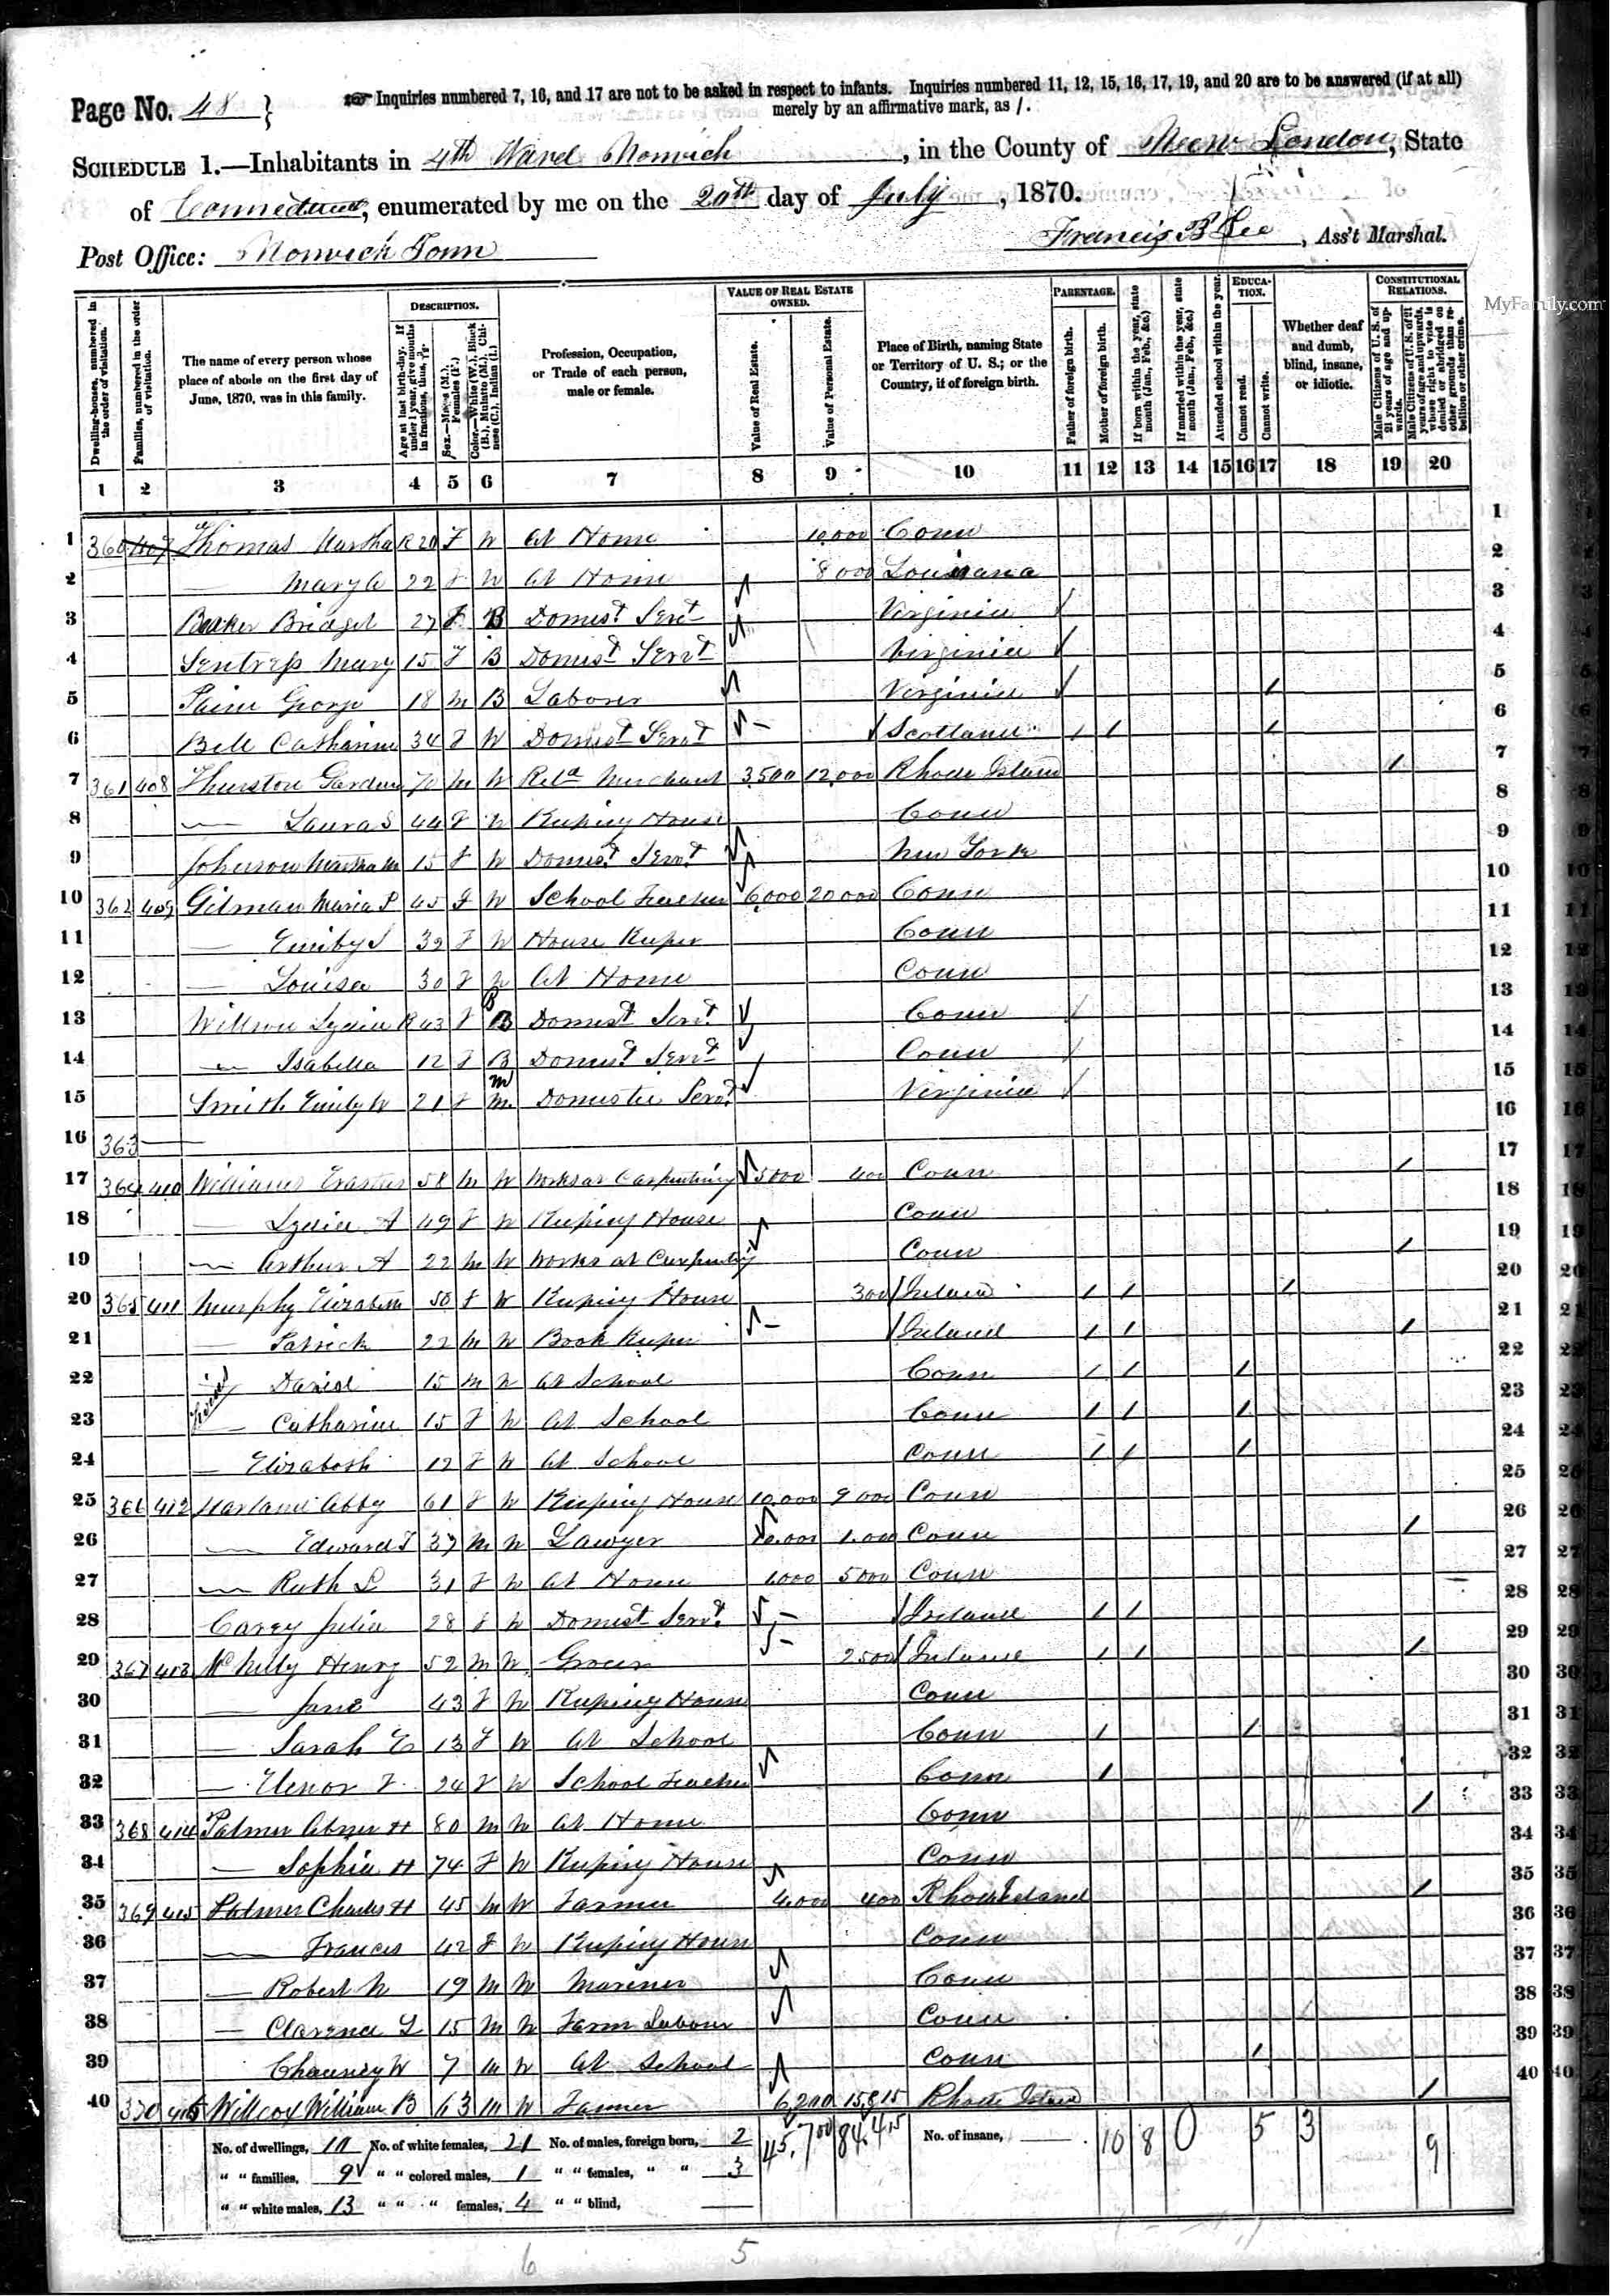 Page No. 48
Inquiries numbered 7, 16, and 17 are not to be asked in respect to infants. Inquiries numbered 11, 12, 15, 16, 17, 19, and 20 are to be answered (if at all)
merely by an affirmative mark, as /.
SCHEDULE 1.—Inhabitants in 4th Ward Norwich, in the County of New London, State
of Connecticut, enumerated by me on the 20th day of July, 1870.
Post Office: Norwich Town
Francis B Lee, Ass't Marshal.
MyFamily.com
Dwelling-houses, numbered in the order of visitation.
Families, numbered in the order of visitation.
The name of every person whose place of abode on the first day of June, 1870, was in this family.
DESCRIPTION.
Age at last birth-day. If under 1 year, give months in fractions, thus,
Sex.—Males (M.), Females (F.)
Color.—White (W.), Black (B.), Mulatto (M.), Chinese (C.), Indian (I.)
Profession, Occupation, or Trade of each person, male or female.
VALUE OF REAL ESTATE OWNED.
Value of Real Estate.
Value of Personal Estate.
Place of Birth, naming State or Territory of U. S.; or the Country, if of foreign birth.
PARENTAGE.
Father of foreign birth.
Mother of foreign birth.
If born within the year, state month (Jan., Feb., &c.)
If married within the year, state month (Jan., Feb., &c.)
Attended school within the year.
EDUCATION.
Cannot read.
Cannot write.
Whether deaf and dumb, blind, insane, or idiotic.
CONSTITUTIONAL RELATIONS.
Male Citizens of U. S. of 21 years of age and upwards.
Male Citizens of U. S. of 21 years of age and upwards, whose right to vote is denied or abridged on other grounds than rebellion or other crime.
1 2 3 4 5 6 7 8 9 10 11 12 13 14 15 16 17 18 19 20
1 360 407 Thomas Martha R 20 F W At Home 10,000 Conn 1
2 — Mary A 22 F W At Home 8000 Louisiana 2
3 Baker Bridget 27 F B Domest Servt Virginia / 3
4 Mary 15 F B Domest Servt Virginia / 4
5 George 18 M B Laborer Virginia / / 5
6 Bell Catharine 34 F W Domest Servt Scotland / / / 6
7 361 408 Thurston 70 M W Merchant 3500 12,000 Rhode Island / 7
8 — Laura S 44 F W Keeping House Conn 8
9 Johnson Martha M 15 F W Domest Servt New York 9
10 362 409 Gilman Maria P 45 F W School Teacher 6000 20000 Conn 10
11 — Emily S 32 F W House Keeper Conn 11
12 — Louisa 30 F W At Home Conn 12
13 Lydia R 43 F B Domest Servt Conn / 13
14 — Isabella 12 F B Domest Servt Conn / 14
15 Smith Emily W 21 F M Domestic Servt Virginia / 15
16 363 — 16
17 364 410 Williams Erastus 58 M W Works at Carpentring 5000 400 Conn / 17
18 — Lydia A 49 F W Keeping House Conn 18
19 — Arthur A 22 M W Works at Carpentring Conn / 19
20 365 411 Murphy Elizabeth 50 F W Keeping House 300 Ireland / / / 20
21 — Patrick 22 M W Book Keeper Ireland / / / 21
22 Daniel 15 M W At School Conn / / / 22
23 — Catharine 15 F W At School Conn / / / 23
24 — Elizabeth 12 F W At School Conn / / / 24
25 366 412 Harland Abby 61 F W Keeping House 10,000 9000 Conn 25
26 — Edward T 37 M W Lawyer 10,000 1,000 Conn / 26
27 — Ruth L 31 F W At Home 1000 5000 Conn 27
28 Carey Julia 28 F W Domest Servt Ireland / / 28
29 367 413 McNelly Henry 52 M W Grocer 2500 Ireland / / / 29
30 — Jane 43 F W Keeping House Conn 30
31 — Sarah E 13 F W At School Conn / / 31
32 — Elenor F 24 F W School Teacher Conn / 32
33 368 414 Palmer Abner H 80 M W At Home Conn / 33
34 — Sophia H 74 F W Keeping House Conn 34
35 369 415 Palmer Charles H 45 M W Farmer 4000 400 Rhode Island / 35
36 — Frances 42 F W Keeping House Conn 36
37 — Robert N 19 M W Mariner Conn 37
38 — Clarence L 15 M W Farm Labour Conn 38
39 Chauncy W 7 M W At School Conn / 39
40 370 416 Willcox William B 63 M W Farmer 6,200 15,815 Rhode Island / 40
No. of dwellings, 10 No. of white females, 21 No. of males, foreign born, 2 45,700 84,415 No. of insane, — 10 8 0 5 3 9
" " families, 9 " " colored males, 1 " " females, " " 3
" " white males, 13 " " " females, 4 " " blind, —
6 5